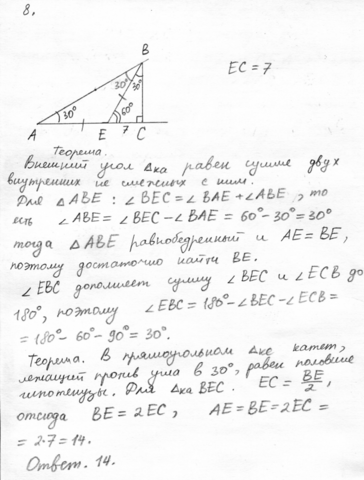 8.
B
30° 30°
EC = 7
30° 60°
A E 7 C
Теорема.
Внешний угол Δка равен сумме двух
внутренних не смежных с ним.
Для △ABE : ∠BEC = ∠BAE + ∠ABE, то
есть ∠ABE = ∠BEC - ∠BAE = 60° - 30° = 30°
тогда △ABE равнобедренный и AE = BE,
поэтому достаточно найти BE.
∠EBC дополняет сумму ∠BEC и ∠ECB до
180°, поэтому ∠EBC = 180° - ∠BEC - ∠ECB =
= 180° - 60° - 90° = 30°.
Теорема. В прямоугольном Δке катет,
лежащий против угла в 30°, равен половине
гипотенузы. Для Δка BEC. EC = BE/2,
отсюда BE = 2EC, AE = BE = 2EC =
= 2·7 = 14.
Ответ. 14.